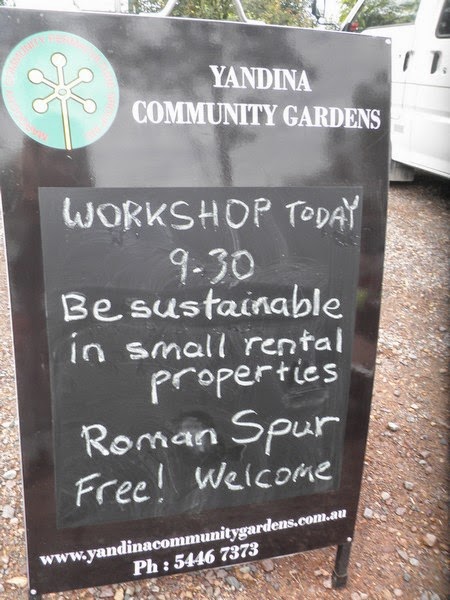 YANDINA
COMMUNITY GARDENS
WORKSHOP TODAY
9-30
Be sustainable
in small rental
properties
Roman Spur
Free! Welcome
www.yandinacommunitygardens.com.au
Ph : 5446 7373